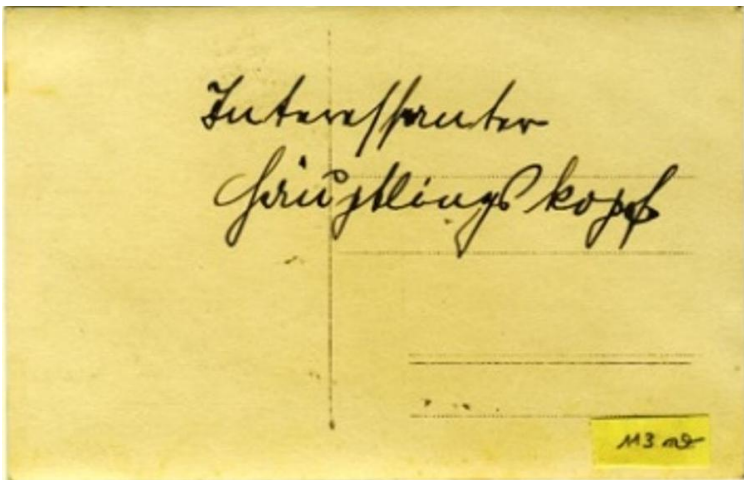 Interessanter
Häuptlingskopf
113